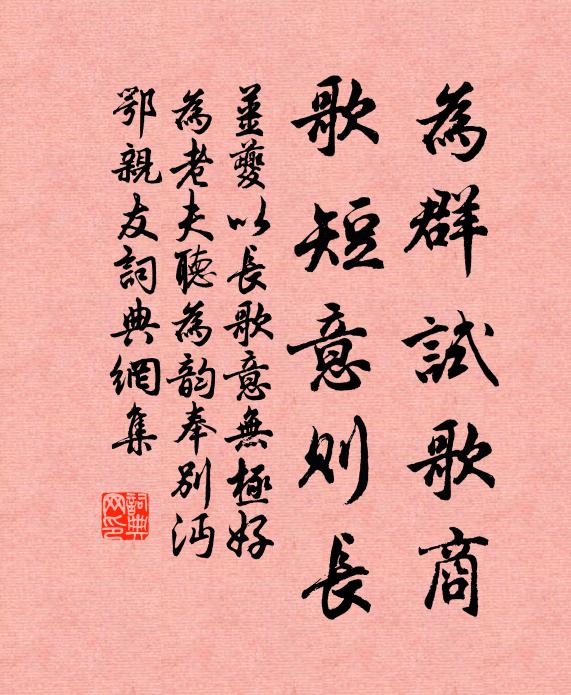 為群試歌商
歌短意則長
薑夔以長歌意無極好
為老夫聽為韵奉別沔
鄂親友詞典網集
詞典
网印